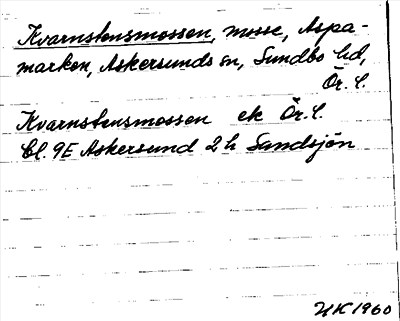 Kvarnstensmossen, mosse, Aspa-
marken, Askersunds sn, Sundbo hd,
Ör. l.
Kvarnstensmossen ek Ör. l.
bl. 9E Askersund 2 h Sandsjön
HK 1960